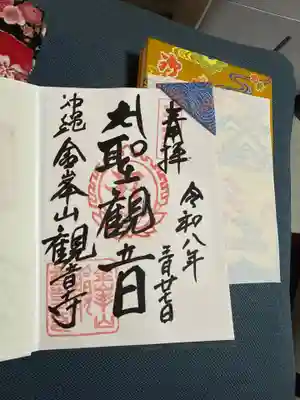 奉拝
令和八年
月廿七日
大聖観音
沖縄 金峯山 観音寺